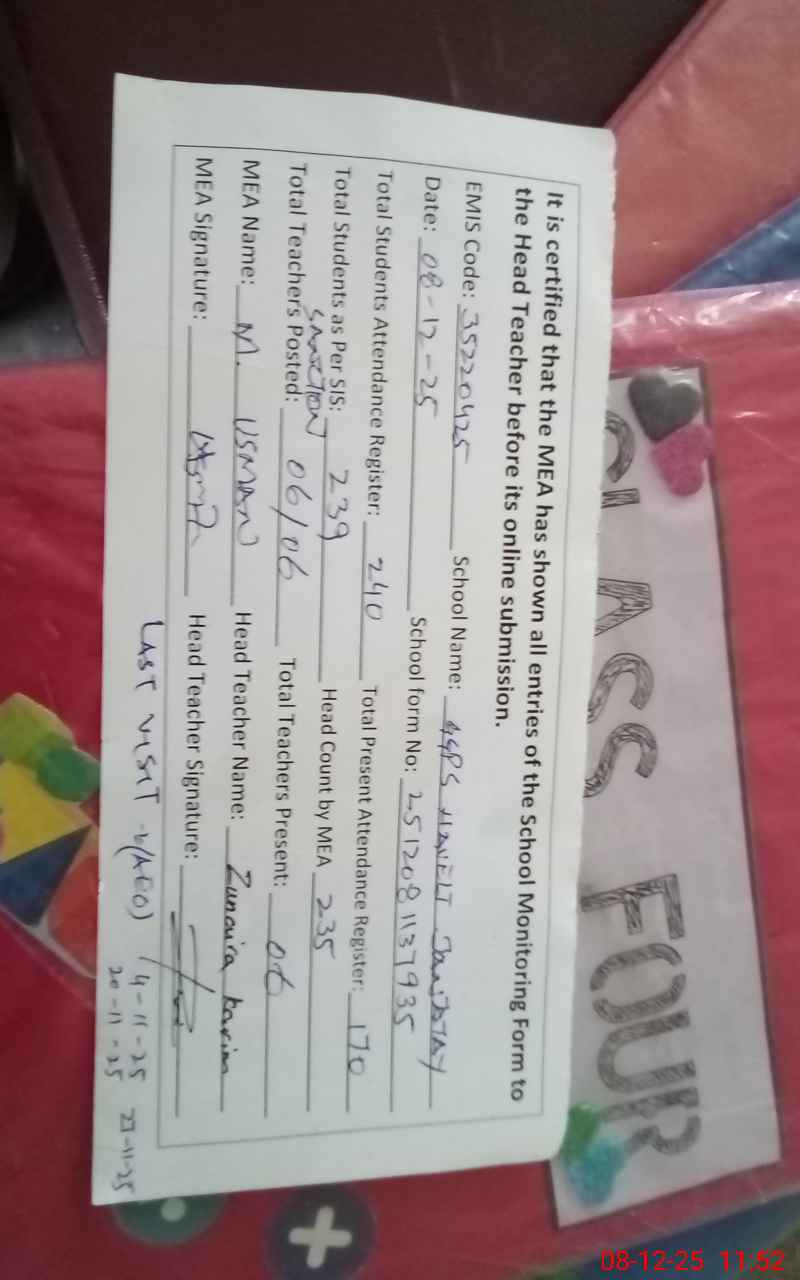 It is certified that the MEA has shown all entries of the School Monitoring Form to
the Head Teacher before its online submission.
EMIS Code: 35220425 School Name: GGPS HAVELI
Date: 08-12-25 School form No: 2512081137935
Total Students Attendance Register: 240 Total Present Attendance Register: 170
Total Students as Per SIS: 239 Head Count by MEA 235
SANCTION
Total Teachers Posted: 06/06 Total Teachers Present: 06
MEA Name: M. USMAN Head Teacher Name: Zunaira Karim
MEA Signature: Head Teacher Signature:
LAST VISIT (AEO) 14-11-25 27-11-25
20-11-25
CLASS FOUR
08-12-25 11:52